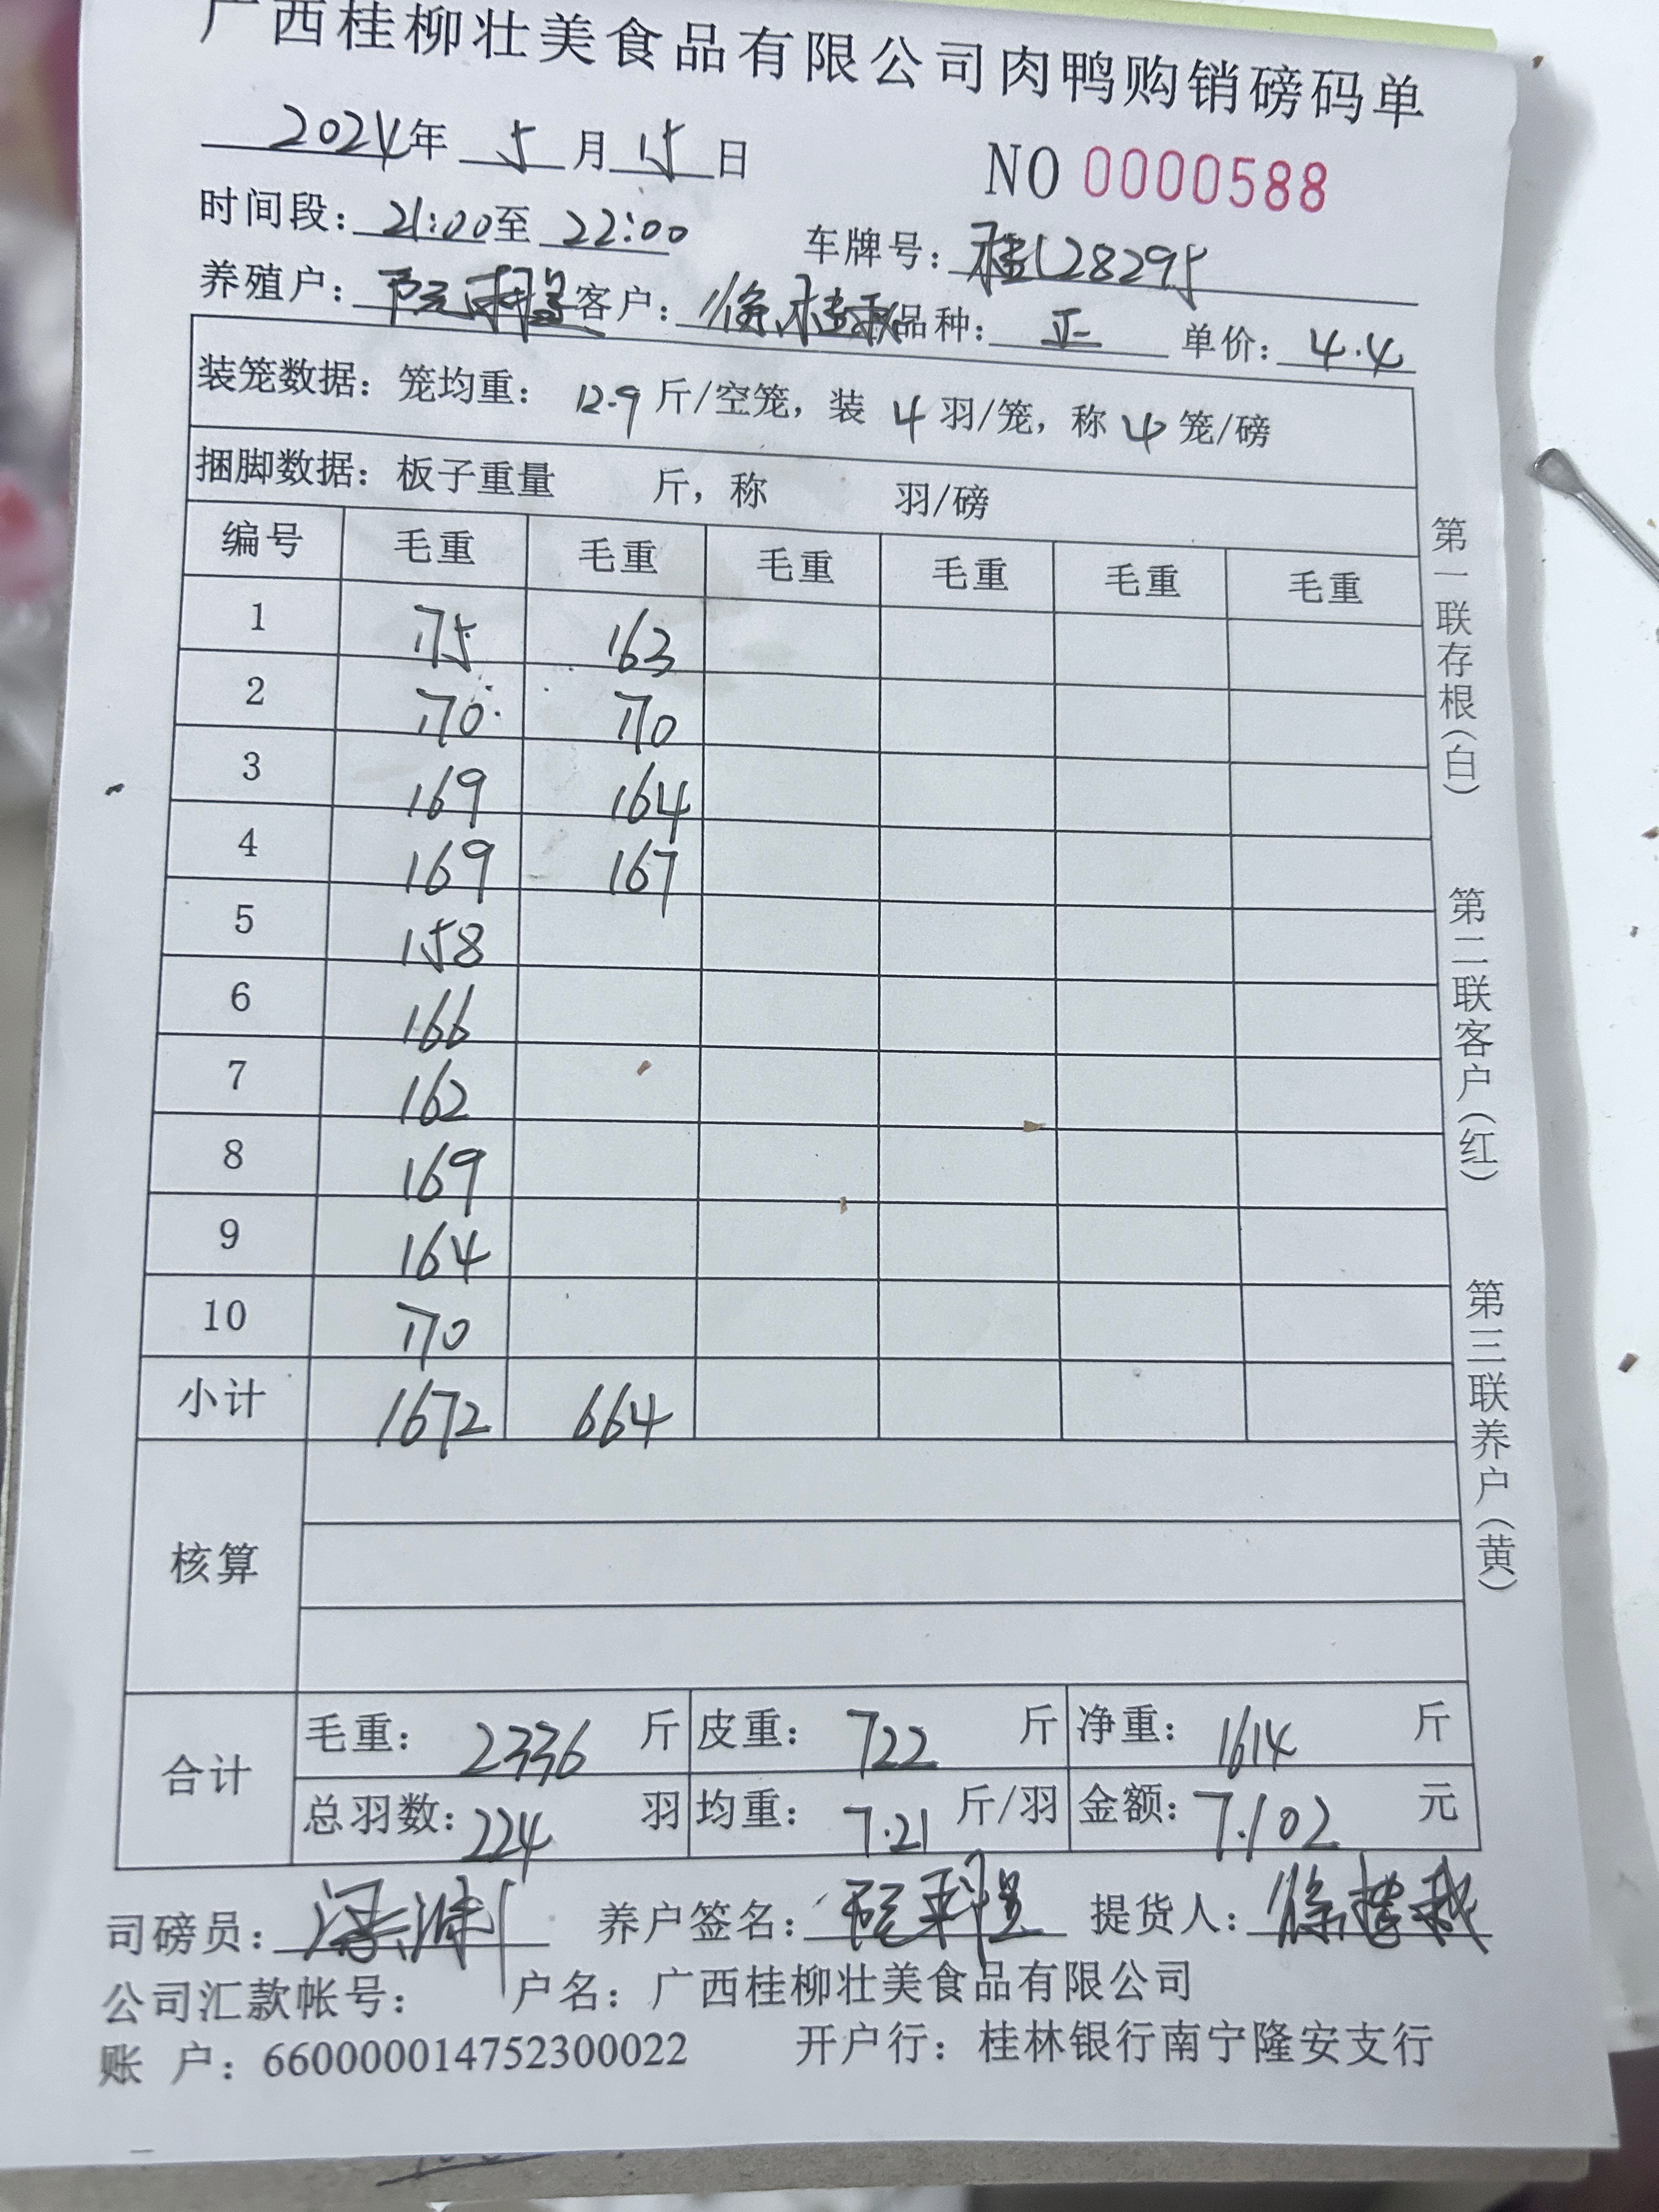 广西桂柳壮美食品有限公司肉鸭购销磅码单
2024年 5 月 15 日 NO 0000588
时间段：21:00至 22:00 车牌号：桂L28295
养殖户： 客户：徐桂秋 品种：正 单价：4.4
装笼数据：笼均重：12.9斤/空笼，装 4 羽/笼，称 4 笼/磅
捆脚数据：板子重量 斤，称 羽/磅
编号 毛重 毛重 毛重 毛重 毛重 毛重
1 175 163
2 170 170
3 169 164
4 169 167
5 158
6 166
7 162
8 169
9 164
10 170
小计 1672 664
核算
合计 毛重：2336 斤 皮重：722 斤 净重：1614 斤
总羽数：224 羽 均重：7.21 斤/羽 金额：7.102 元
司磅员： 养户签名： 提货人：
公司汇款帐号： 户名：广西桂柳壮美食品有限公司
账 户：660000014752300022 开户行：桂林银行南宁隆安支行
第一联存根（白）
第二联客户（红）
第三联养户（黄）